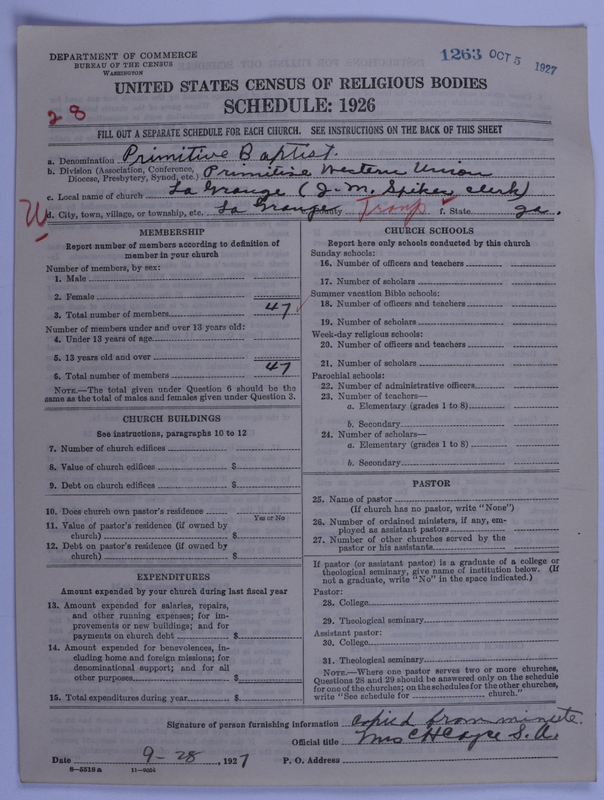 DEPARTMENT OF COMMERCE
BUREAU OF THE CENSUS
WASHINGTON
1263 OCT 5 1927
UNITED STATES CENSUS OF RELIGIOUS BODIES
SCHEDULE: 1926
28
FILL OUT A SEPARATE SCHEDULE FOR EACH CHURCH. SEE INSTRUCTIONS ON THE BACK OF THIS SHEET
a. Denomination Primitive Baptist.
b. Division (Association, Conference, Diocese, Presbytery, Synod, etc.) Primitive Western Union
c. Local name of church La Grange (J. M. Spikes, clerk)
W d. City, town, village, or township, etc. La Grange County Troup f. State Ga.
MEMBERSHIP
Report number of members according to definition of
member in your church
Number of members, by sex:
1. Male
2. Female
3. Total number of members 47
Number of members under and over 13 years old:
4. Under 13 years of age
5. 13 years old and over
6. Total number of members 47
NOTE.—The total given under Question 6 should be the
same as the total of males and females given under Question 3.
CHURCH BUILDINGS
See instructions, paragraphs 10 to 12
7. Number of church edifices
8. Value of church edifices $
9. Debt on church edifices $
10. Does church own pastor's residence
Yes or No
11. Value of pastor's residence (if owned by
church) $
12. Debt on pastor's residence (if owned by
church) $
EXPENDITURES
Amount expended by your church during last fiscal year
13. Amount expended for salaries, repairs,
and other running expenses; for im-
provements or new buildings; and for
payments on church debt $
14. Amount expended for benevolences, in-
cluding home and foreign missions; for
denominational support; and for all
other purposes $
15. Total expenditures during year $
CHURCH SCHOOLS
Report here only schools conducted by this church
Sunday schools:
16. Number of officers and teachers
17. Number of scholars
Summer vacation Bible schools:
18. Number of officers and teachers
19. Number of scholars
Week-day religious schools:
20. Number of officers and teachers
21. Number of scholars
Parochial schools:
22. Number of administrative officers
23. Number of teachers—
a. Elementary (grades 1 to 8)
b. Secondary
24. Number of scholars—
a. Elementary (grades 1 to 8)
b. Secondary
PASTOR
25. Name of pastor
(If church has no pastor, write "None")
26. Number of ordained ministers, if any, em-
ployed as assistant pastors
27. Number of other churches served by the
pastor or his assistants
If pastor (or assistant pastor) is a graduate of a college or
theological seminary, give name of institution below. (If
not a graduate, write "No" in the space indicated.)
Pastor:
28. College
29. Theological seminary
Assistant pastor:
30. College
31. Theological seminary
NOTE.—Where one pastor serves two or more churches,
Questions 28 and 29 should be answered only on the schedule
for one of the churches; on the schedules for the other churches,
write "See schedule for church."
Signature of person furnishing information copied from minute.
Official title Mrs C H Cayce S. A.
Date 9-28, 1927 P. O. Address
8—5518a 11—9054